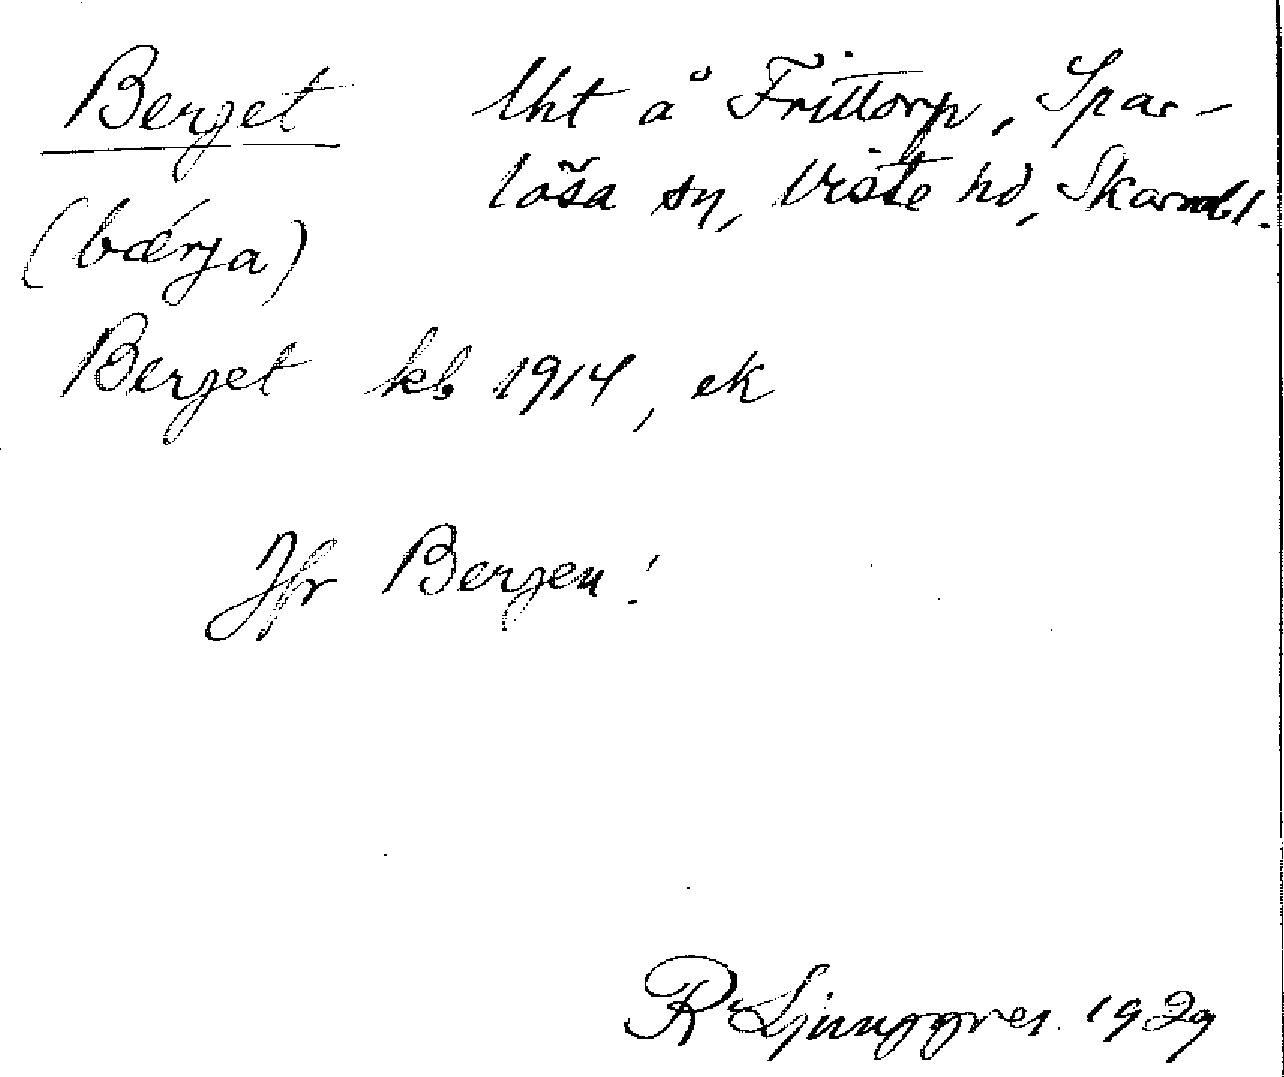 Berget lht å Frittorp, Spar-
lösa sn, Viste hd, Skarabl.
(bærja)
Berget kb 1914, ek
Jfr Bergen!
R Ljunggren 1929